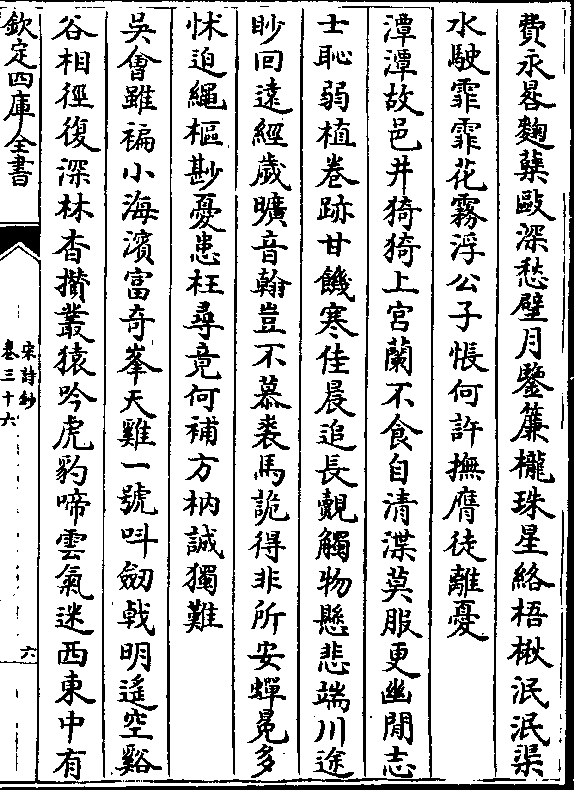 費永晷麴櫱歐深愁壁月鑒簾櫳珠星絡梧楸泯泯渠
水駛霏霏花霧浮公子悵何許撫膺徒離憂
潭潭故邑井猗猗上宫蘭不食自清渫莫服更幽閒志
士恥弱植卷跡甘饑寒佳晨追長覿觸物懸悲端川途
眇回遠經歲曠音翰豈不慕裘馬詭得非所安蟬冕多
怵迫繩樞尠憂患枉尋竟何補方枘誠獨難
吳會雖褊小海濱富奇峯天雞一號呌劒戟明遙空谿
谷相徑復深林杳攅叢猿吟虎豹啼雲氣迷西東中有
欽定四庫全書
宋詩鈔
卷三十六
六